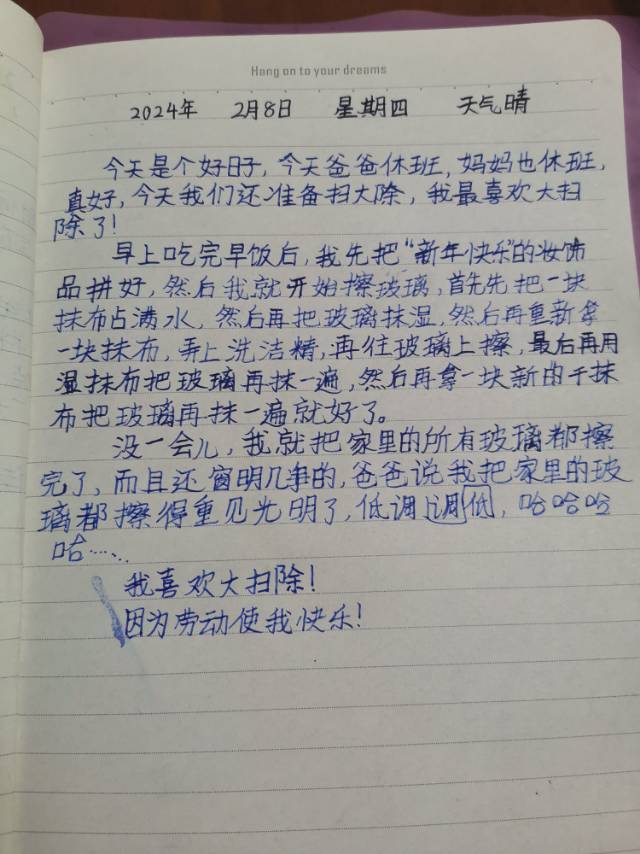 Hang on to your dreams
2024年 2月8日 星期四 天气晴
今天是个好日子,今天爸爸休班,妈妈也休班,
真好,今天我们还准备扫大除,我最喜欢大扫
除了!
早上吃完早饭后,我先把“新年快乐”的妆饰
品拼好,然后我就开始擦玻璃,首先先把一块
抹布占满水,然后再把玻璃抹湿,然后再重新拿
一块抹布,弄上洗洁精,再往玻璃上擦,最后再用
湿抹布把玻璃再抹一遍,然后再拿一块新的干抹
布把玻璃再抹一遍就好了。
没一会儿,我就把家里的所有玻璃都擦
完了,而且还窗明几净的,爸爸说我把家里的玻
璃都擦得重见光明了,低调调低,哈哈哈
哈……
我喜欢大扫除!
因为劳动使我快乐!